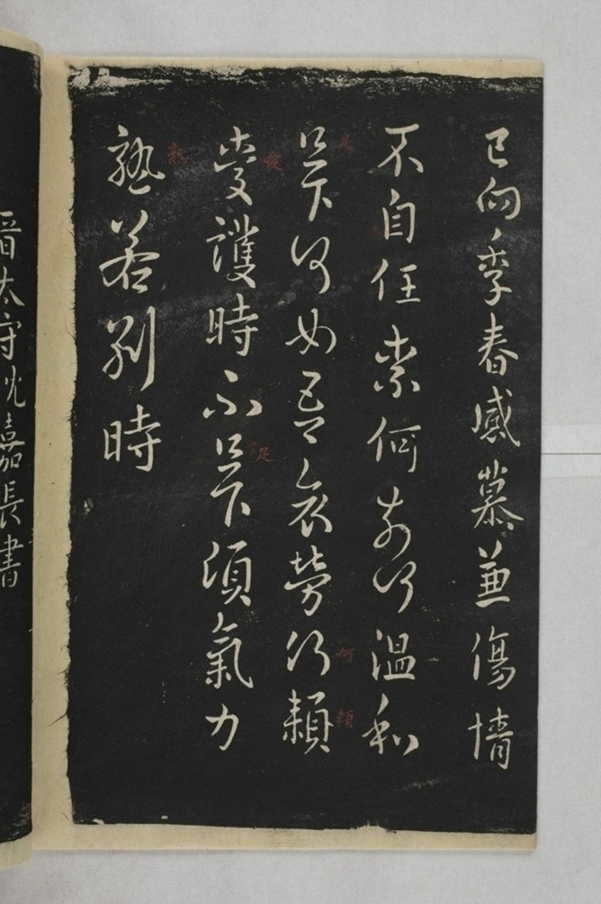 已向季春感慕兼傷情
不自任柰何溫和
足下何如吾哀勞何賴
愛護時不足下須氣力
孰若別時
晉太守沈嘉長書